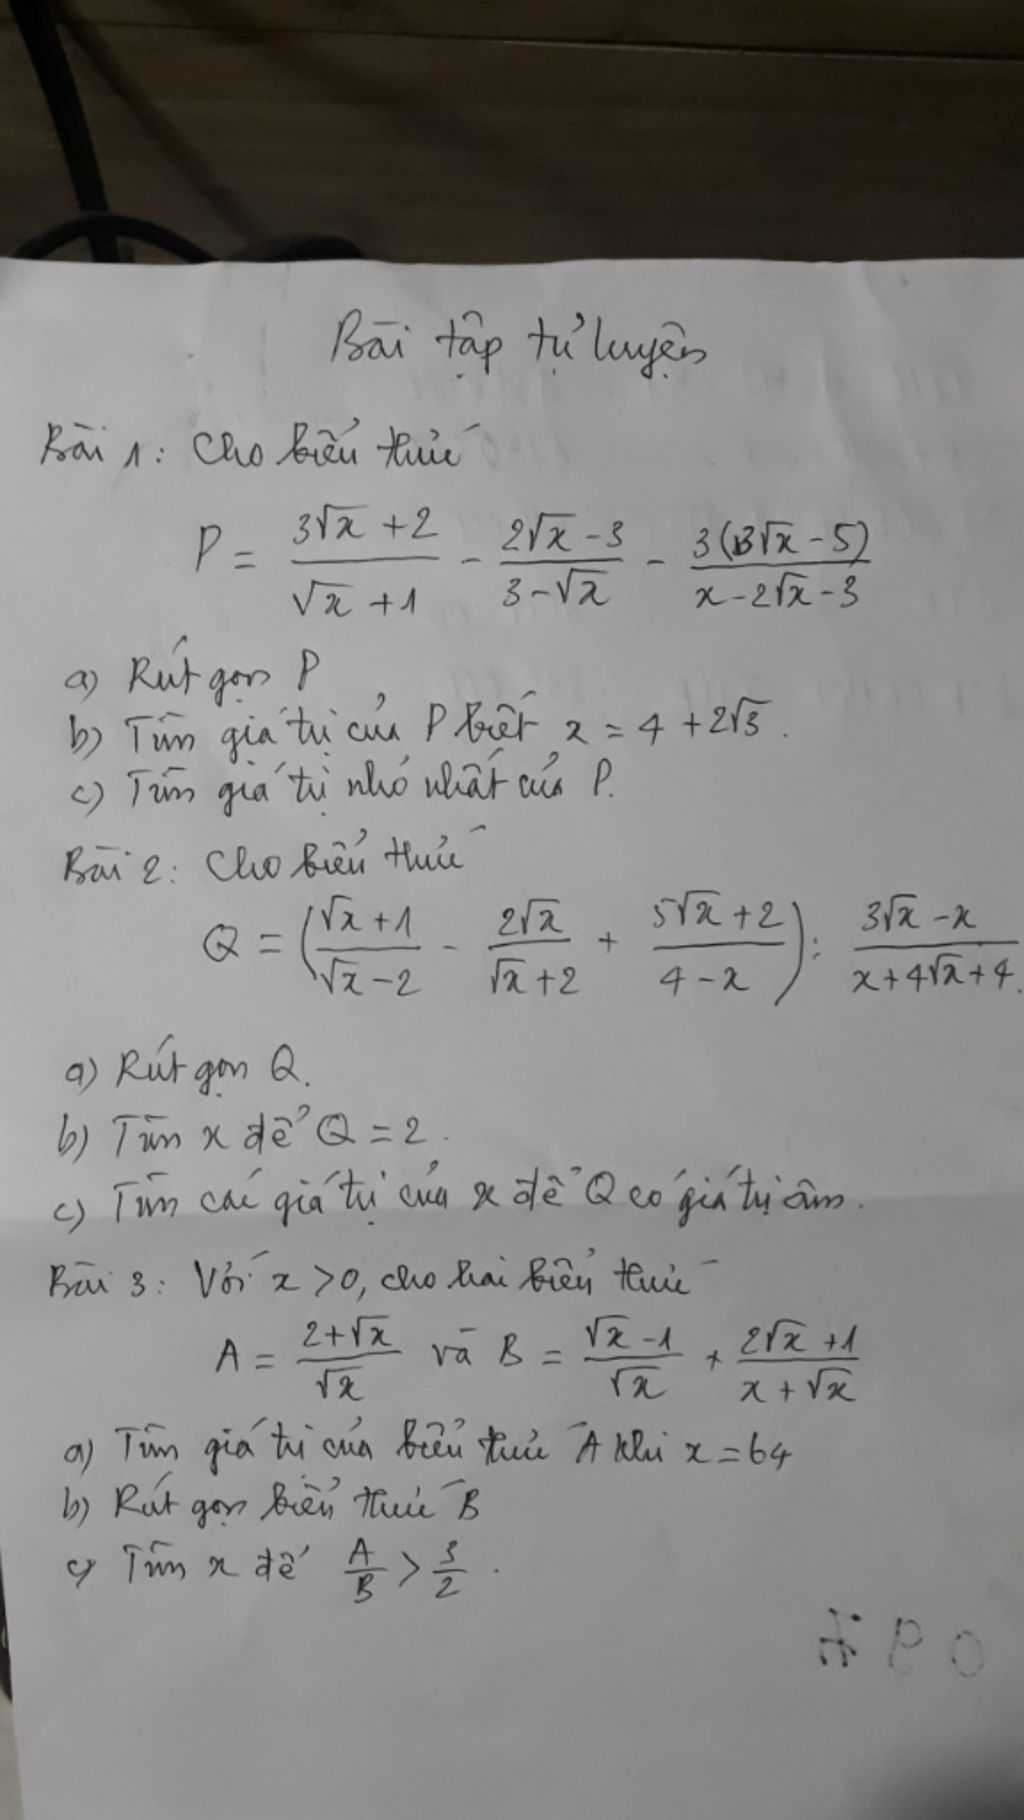 Bài tập tự luyện
Bài 1: Cho biểu thức
P = \frac{3\sqrt{x}+2}{\sqrt{x}+1} - \frac{2\sqrt{x}-3}{3-\sqrt{x}} - \frac{3(3\sqrt{x}-5)}{x-2\sqrt{x}-3}
a) Rút gọn P
b) Tìm giá trị của P biết x = 4 + 2\sqrt{3}.
c) Tìm giá trị nhỏ nhất của P.
Bài 2: Cho biểu thức
Q = (\frac{\sqrt{x}+1}{\sqrt{x}-2} - \frac{2\sqrt{x}}{\sqrt{x}+2} + \frac{5\sqrt{x}+2}{4-x}) : \frac{3\sqrt{x}-x}{x+4\sqrt{x}+4}.
a) Rút gọn Q.
b) Tìm x để Q = 2.
c) Tìm các giá trị của x để Q có giá trị âm.
Bài 3: Với x > 0, cho hai biểu thức
A = \frac{2+\sqrt{x}}{\sqrt{x}} và B = \frac{\sqrt{x}-1}{\sqrt{x}} + \frac{2\sqrt{x}+1}{x+\sqrt{x}}
a) Tìm giá trị của biểu thức A khi x = 64
b) Rút gọn biểu thức B
c) Tìm x để \frac{A}{B} > \frac{3}{2}.